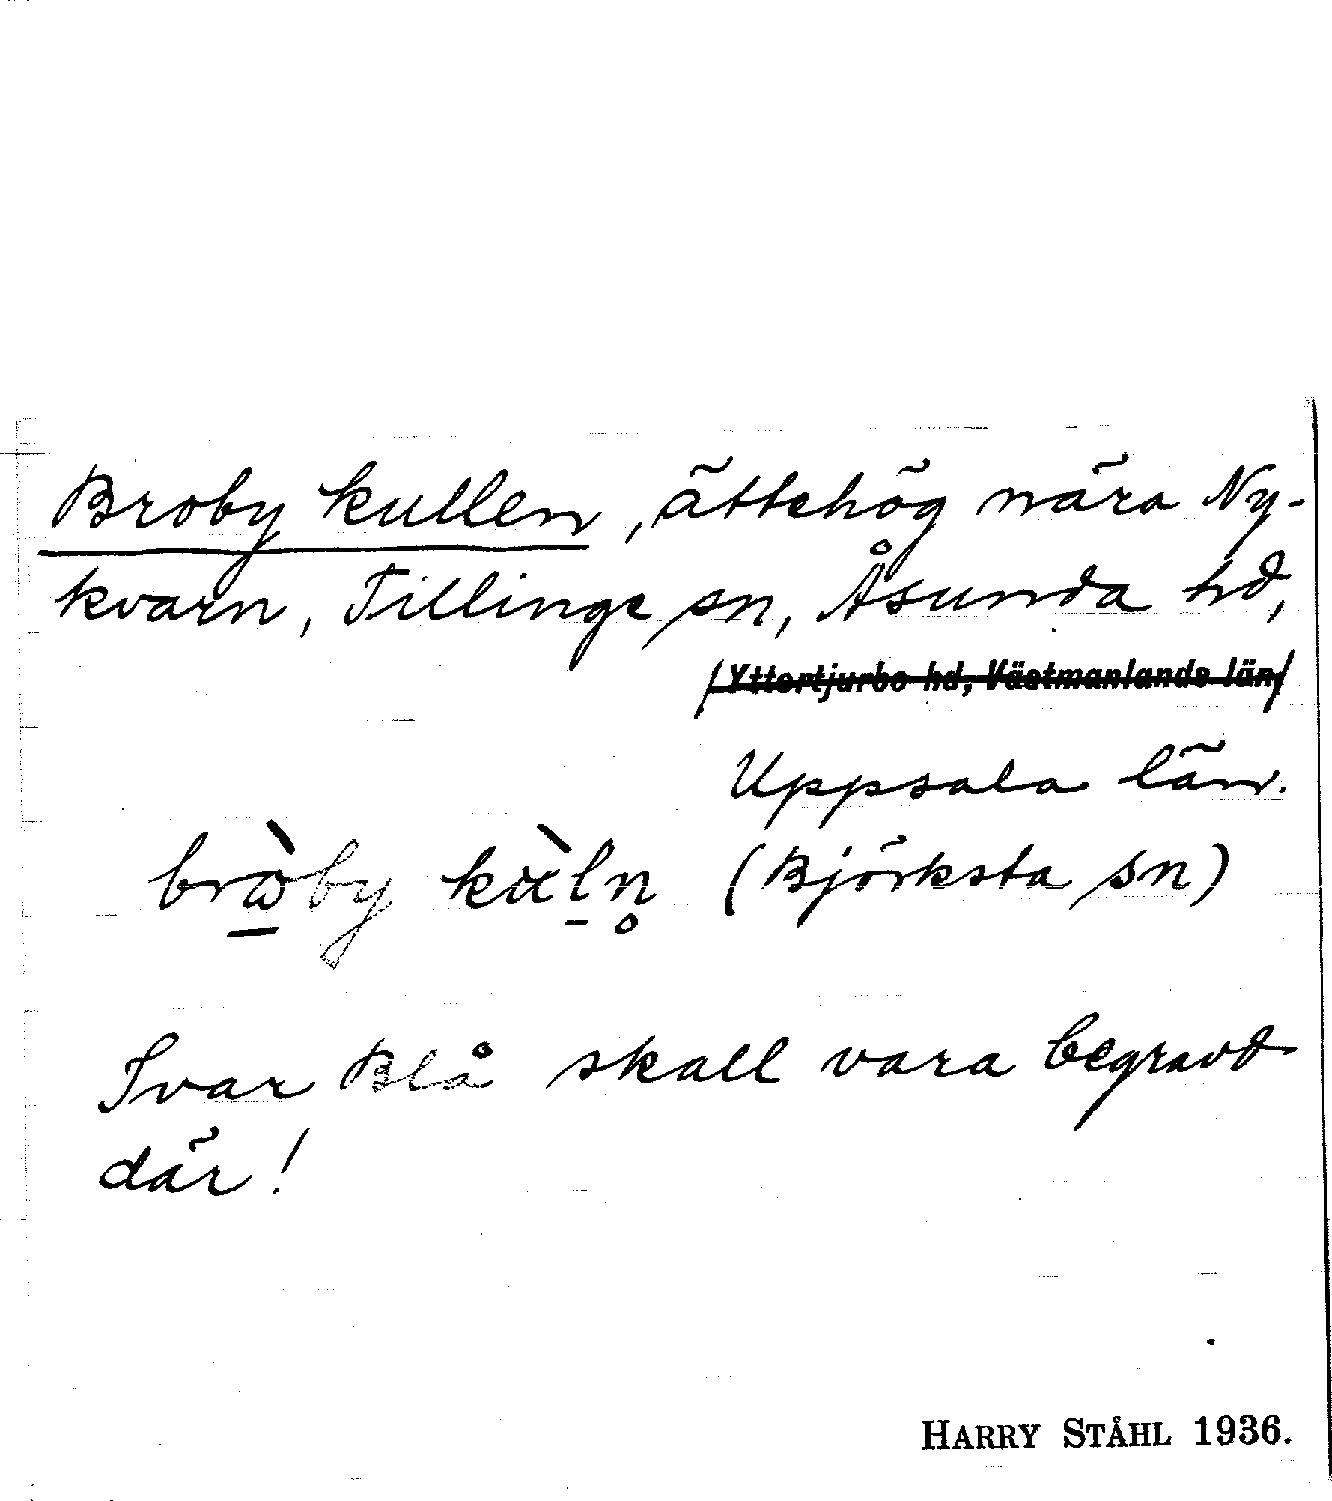 Broby kullen, ättehög nära Ny-
kvarn, Tillinge sn, Åsunda hd,
(Yttertjurbo hd, Västmanlands län)
Uppsala län.
brὼby kùl̠n̥ (Björksta sn)
Ivar Blå skall vara begravd
där!
HARRY STÅHL 1936.